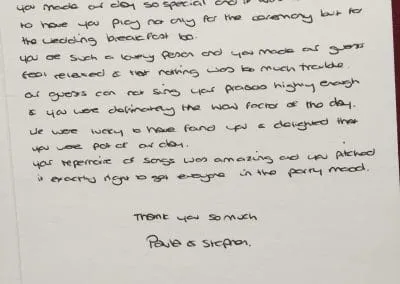 you made our day so special and it was
to have you play not only for the ceremony but for
the wedding breakfast too.
You are such a lovely person and you made our guests
feel relaxed & that nothing was too much trouble.
Our guests can not sing your praises highly enough
& you were definately the WOW factor of the day.
We were lucky to have found you & delighted that
you were part of our day.
Your repertoire of songs was amazing and you pitched
it exactly right to get everyone in the party mood.
Thank you so much
Paula & Stephen.